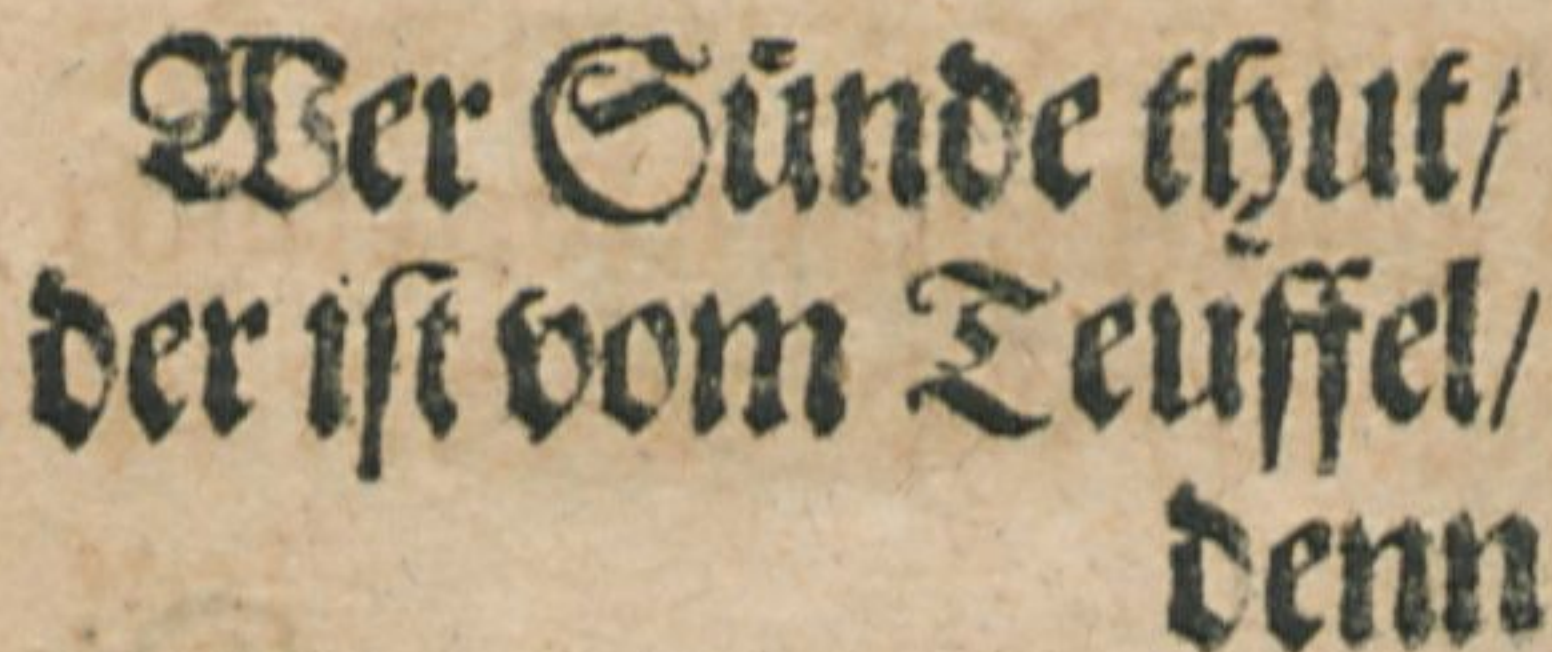 Wer Sünde thut/
der iſt vom Teuffel/
denn